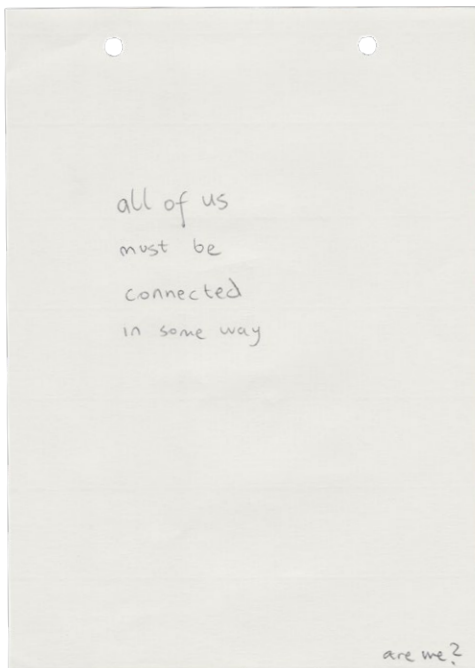 all of us
must be
connected
in some way
are we?